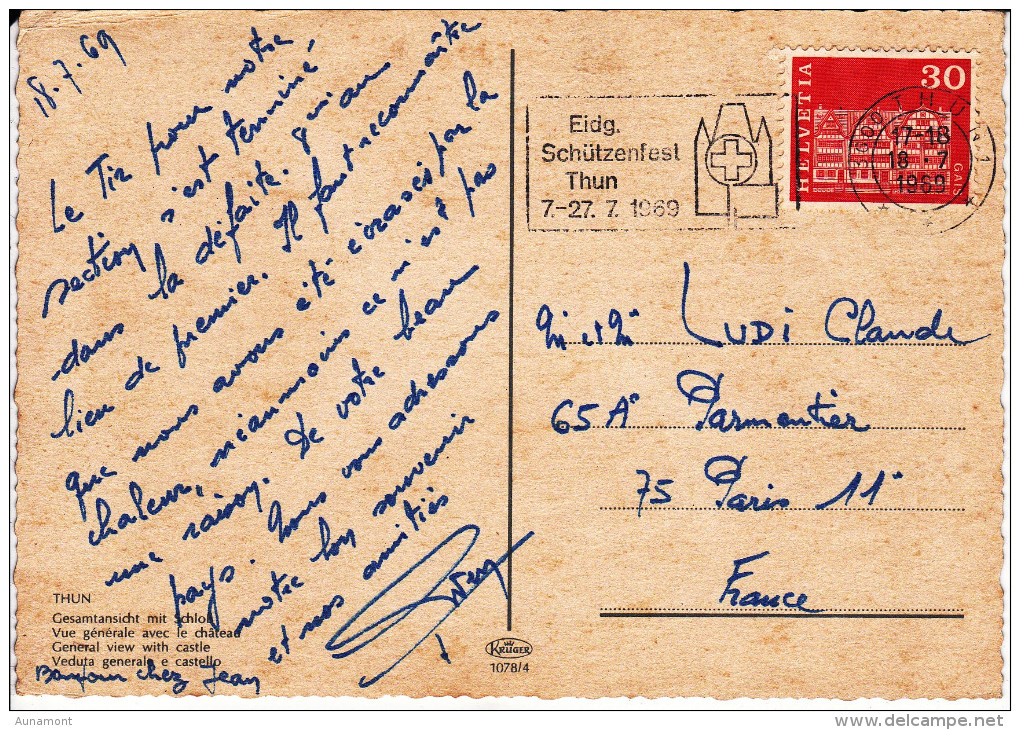 18.7.69
Le Tir pour notre
section s'est terminé
dans la défaite. grian
lieu de premier. Il faut reconnaître
que nous avons été écrasés par la
chaleur, néanmoins ce n'est pas
une raison. De votre beau
pays. Nous vous adressons
notre bon souvenir
et nos amitiés
Bonjour chez Jean
THUN
Gesamtansicht mit Schloß
Vue générale avec le château
General view with castle
Veduta generale e castello
KRÜGER
1078/4
Eidg.
Schützenfest
Thun
7.-27. 7. 1969
HELVETIA
30
GAIS
3600 THUN 1
17-18
18.7
1969
M et M LUDI Claude
65 Av Parmentier
75 Paris 11e
France
Aunamont
delcampe.net